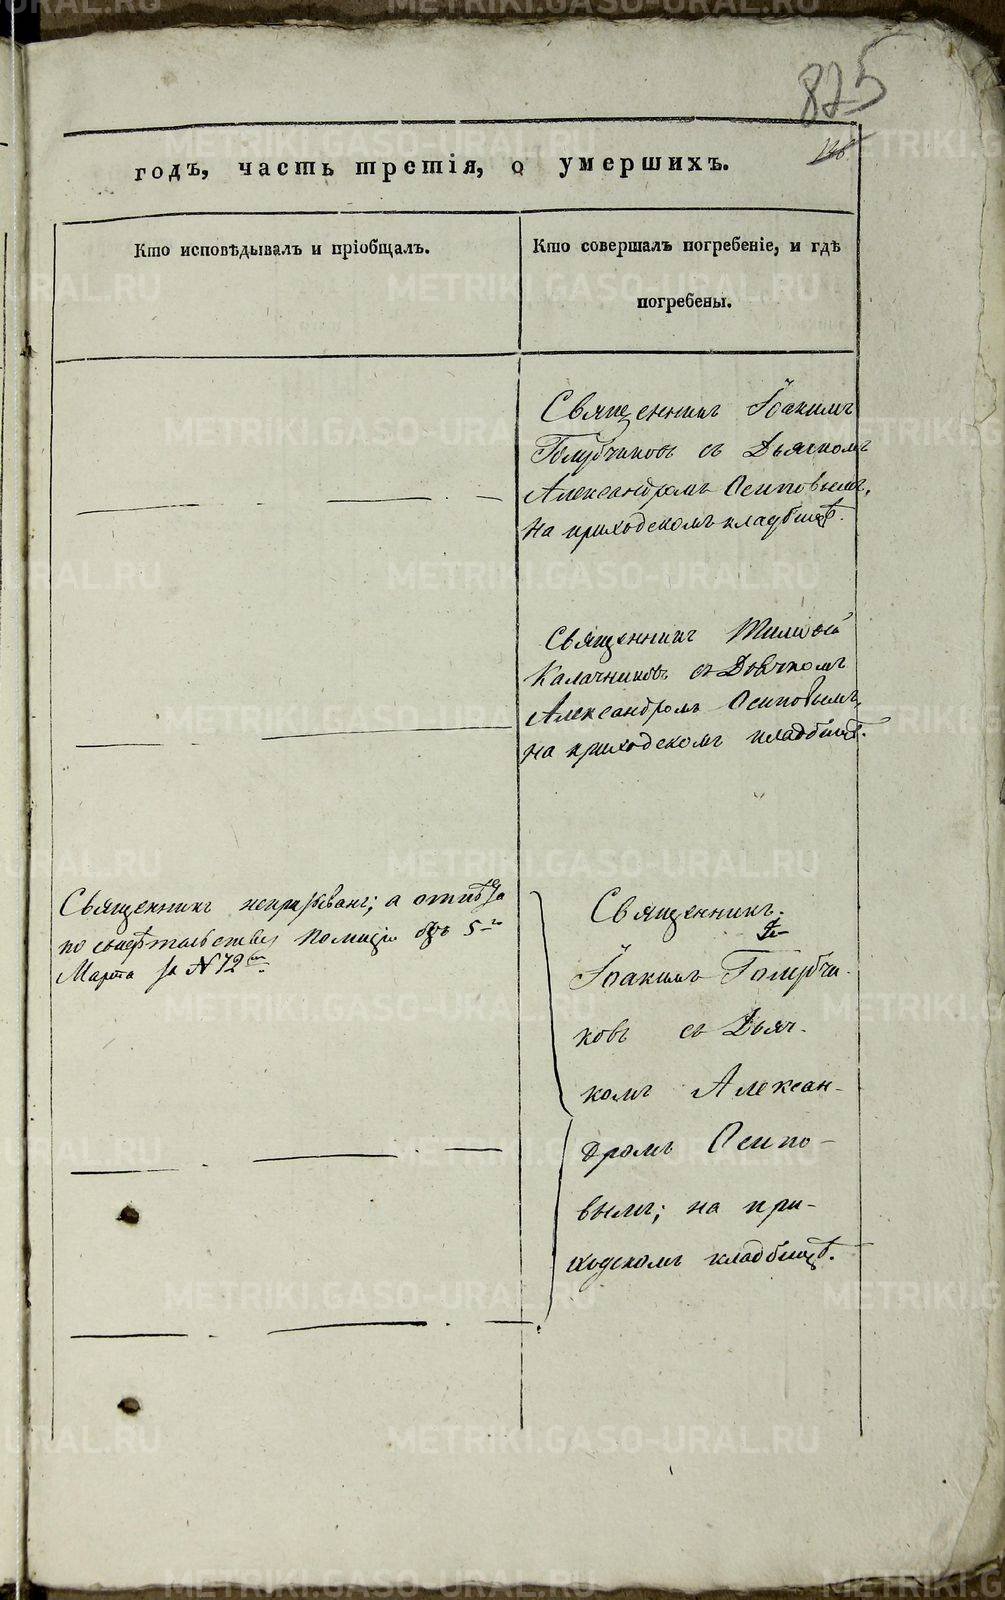 875
годъ, часть третія, о умершихъ.
Кто исповѣдывалъ и пріобщалъ.
Кто совершалъ погребеніе, и гдѣ
погребены.
Священникъ Іоакимъ
Голубчиковъ съ Дьячкомъ
Александромъ Осиповымъ,
на приходскомъ кладбищѣ.
Священникъ Тимофей
Калачниковъ съ Дьячкомъ
Александромъ Осиповымъ,
на приходскомъ кладбищѣ.
Священникъ непризыванъ; а отпѣта
по свидѣтельству Полиціи отъ 5го
Марта за №72мъ
Священникъ
Іоакимъ Голубчи-
ковъ съ Дьяч-
комъ Алексан-
дромъ Осипо-
вымъ; на при-
ходскомъ кладбищѣ.
METRIKI.GASO-URAL.RU